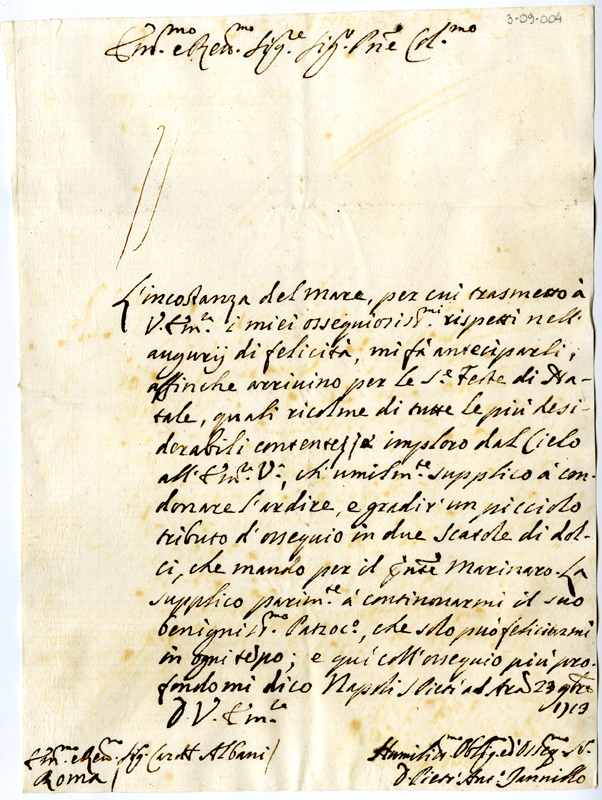 3-09-004
Em.mo e Reu.mo Sig.re Sig.r Pne Col.mo
L'incostanza del Mare, per cui trasmetto à
V. Em.za i miei ossequiosiss.mi rispetti nell'
augurij di felicità, mi fà anteciparli,
affinche arriuino per le S.e Feste di Na-
tale, quali ricolme di tutte le più desi-
derabili contentezze imploro dal Cielo
all'Em.za V.a, ch'umilm.te supplico à con-
donare l'ardire, e gradir' un picciolo
tributo d'ossequio in due scatole di dol-
ci, che mando per il pnte Marinaro. La
supplico parim.te à continonarmi il suo
benigniss.mo Patroc.o, che solo può feliciarmi
in ogni tēpo; e quì coll'ossequio più pro-
fondo mi dico Napoli 23 9bre
1713
D. V. Em.za
Em.mo e Reu.mo Sig. Card. Albani
Roma
Humiliss.mo Oblig. ed Osseq. S.
D. Pietr' Ant.o Jannillo